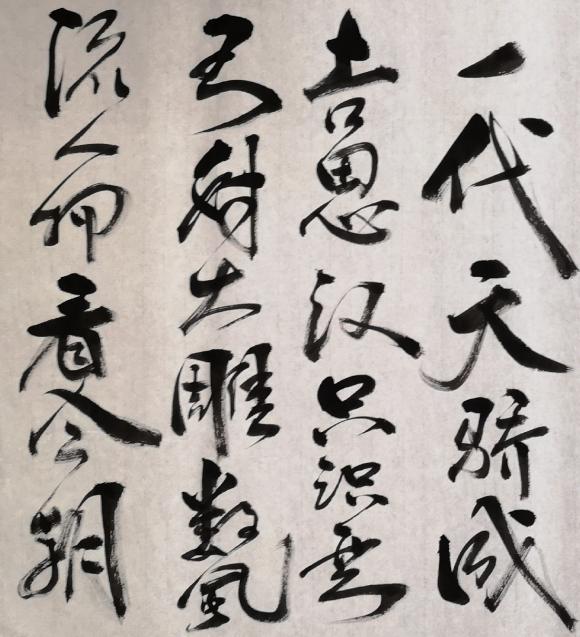 一代天骄成
吉思汉只识弯
弓射大雕数风
流人物看今朝